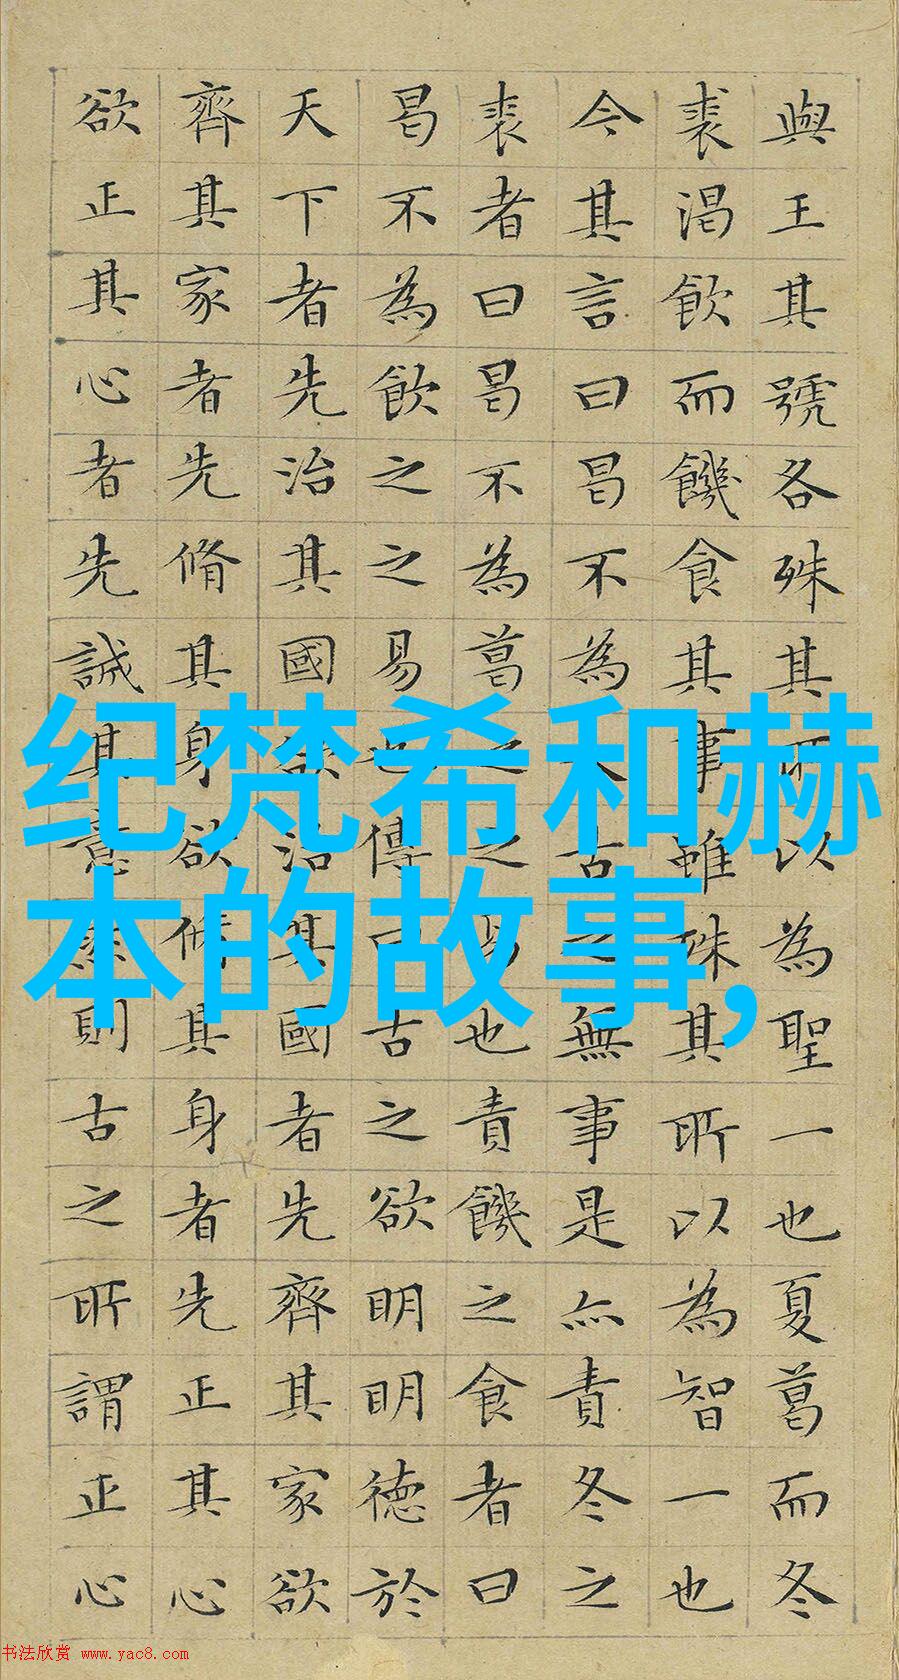 與王其號各殊其所以為聖一也夏葛而冬
裘渴飲而饑食其事雖殊其所以為智一也
今其言曰曷不為太古之無事是亦責冬之
裘者曰曷不為葛之之易也責饑之食者曰
曷不為飲之之易也傳曰古之欲明明德於
天下者先治其國欲治其國者先齊其家欲
齊其家者先脩其身欲脩其身者先正其心
欲正其心者先誠其意然則古之所謂正心
纪梵希和赫
本的故事,
书法欣赏 www.yac8.com